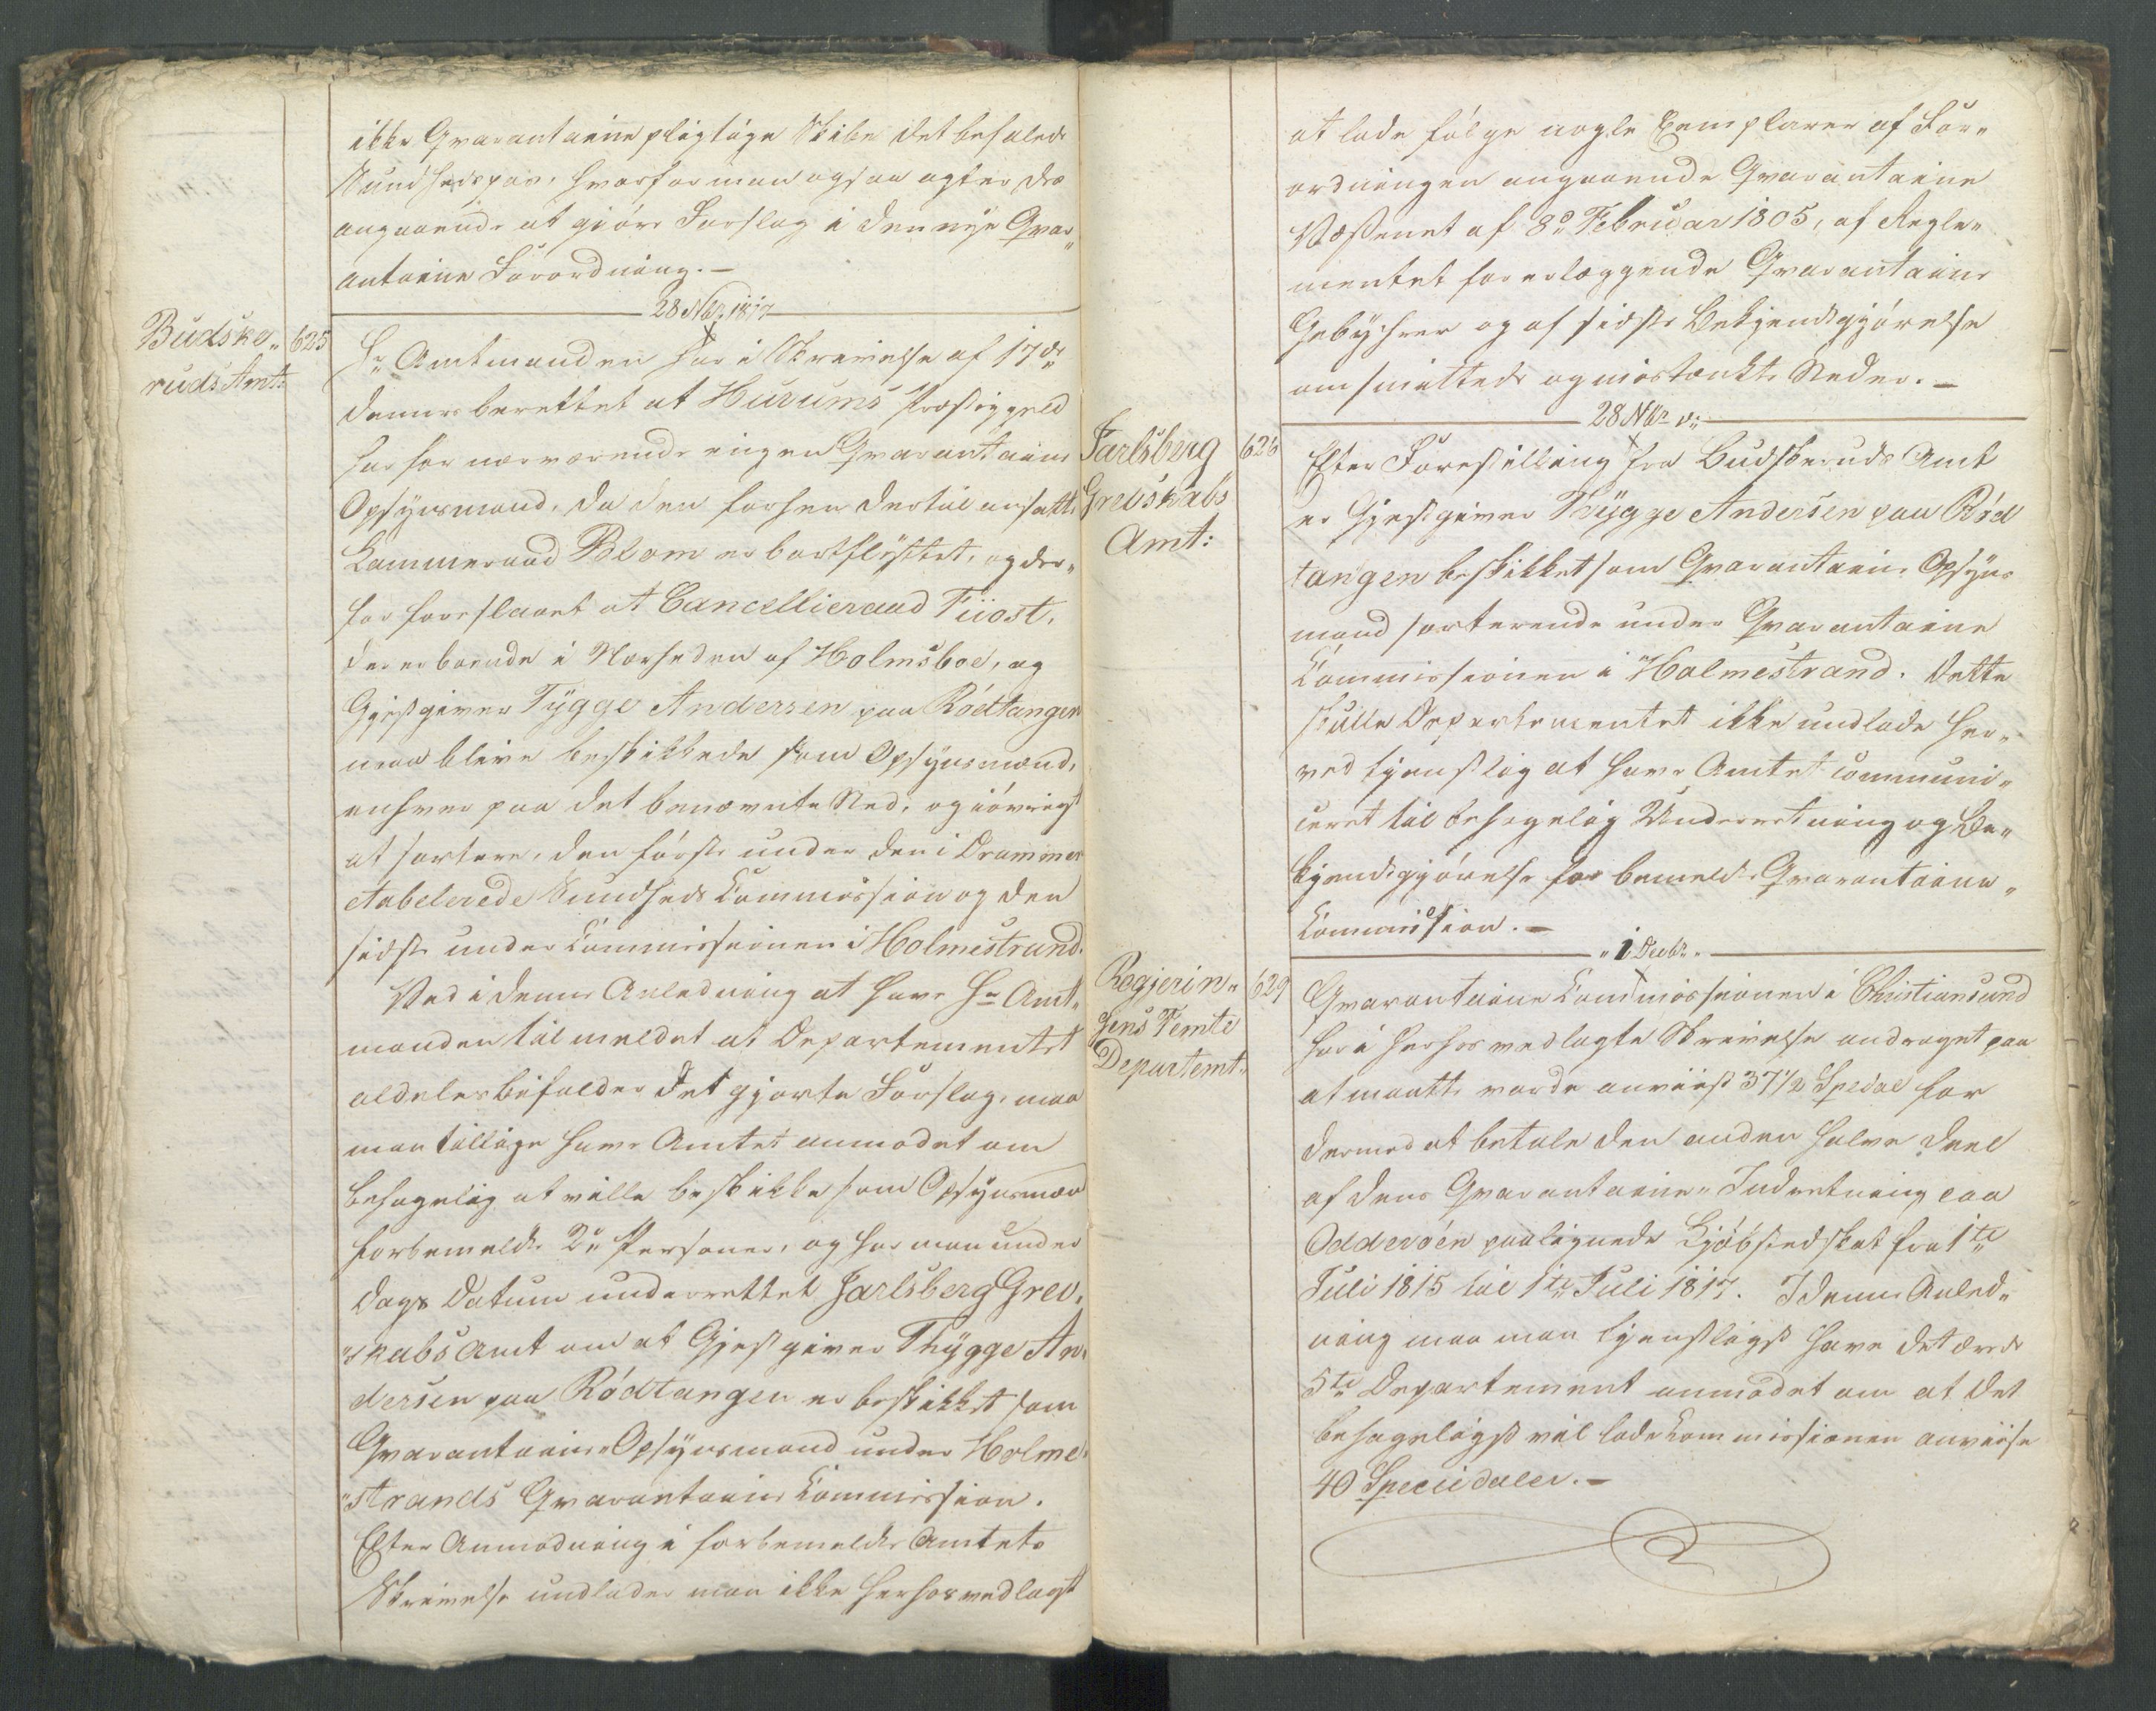 ikke Qvarantaine pligtige Skibe det befalede
Sundhedspas, hvorfor man ogsaa agter des
angaaende at giöre Forslag i den nye Qvar„
antaine Forordning. –
28 Nbr. 1817
Budske„
ruds Amt:
625
Hr Amtmanden har i Skrivelse af 17de
dennes berettet at Hurums Præstegjeld
har for nærværende ingen Qvarantaine
Opsynsmand, da den forhen dertil ansatte
Kammerraad Blom er bortflyttet, og der„
for foreslaaet at Cancellieraad Tiiost,
der er boende i Nærheden af Holmsboe, og
Gjestgiver Tygge Andersen paa Rödtangen
maa blive beskikkede som Opsynsmænd,
enhver paa det benævnte Sted, og iövrigt
at sortere, den förste under den i Drammen
etabelerede Sundheds Commission og den
sidste under Commissionen i Holmestrand.
Ved i denne Anledning at have Hr Amt„
manden tilmeldet at Departementet
aldeles bifalder det gjorte Forslag, maa
man tillige have Amtet anmodet om
behagelig at ville beskikke som Opsynsmæn
forbemeldte 2de Personer, og har man under
Dags Datum underrettet Jarlsberg Grev„
„skabs Amt om at Gjestgiver Thygge An„
dersen paa Rödtangen er beskikket som
Qvarantaine„Opsynsmand under Holme„
„strands Qvarantaine Commission.
Efter Anmodning i forbemeldte Amtets
Skrivelse undlader man ikke herhos vedlagt
at lade fölge nogle Exemplarer af For„
ordningen angaaende Qvarantaine
Væsenet af 8de Februar 1805, af Regle„
mentet for erlæggende Qvarantaine
Gebyhrer og af sidste Bekjendtgjörelse
om smittede og mistænkte Steder. –
28 Nbr d:
Jarlsberg
Grevskabs
Amt:
626
Efter Forestilling fra Budskeruds Amt
er Gjestgiver Thygge Andersen paa Röd
tangen beskikket som Qvarantaine Opsyns
mand sorterende under Qvarantaine
Commissionen i Holmestrand. Dette
skulle Departementet ikke undlade her„
ved tjenstlig at have Amtet communi„
ceret til behagelig Underretning og Be„
kjendtgjörelse for bemeldte Qvarantaine„
Commission. –
„1 Decbr„
Regjerin„
gens Femte
Departemt:
629
Qvarantaine Commissionen i Christiansund
har i herhos vedlagte Skrivelse androget paa
at maatte vorde anviist 37 1/2 Spedal for
dermed at betale den anden halve Deel
af dens Qvarantaine„Indretning paa
Odderöen paalignede Kjöbstedskat fra 1te
Juli 1815 til 1te Juli 1817. I denne Anled„
ning maa man tjenstligst have det ærede
5te Departement anmodet om at det
behageligst vil lade Commissionen anviise
40 Speciedaler. –